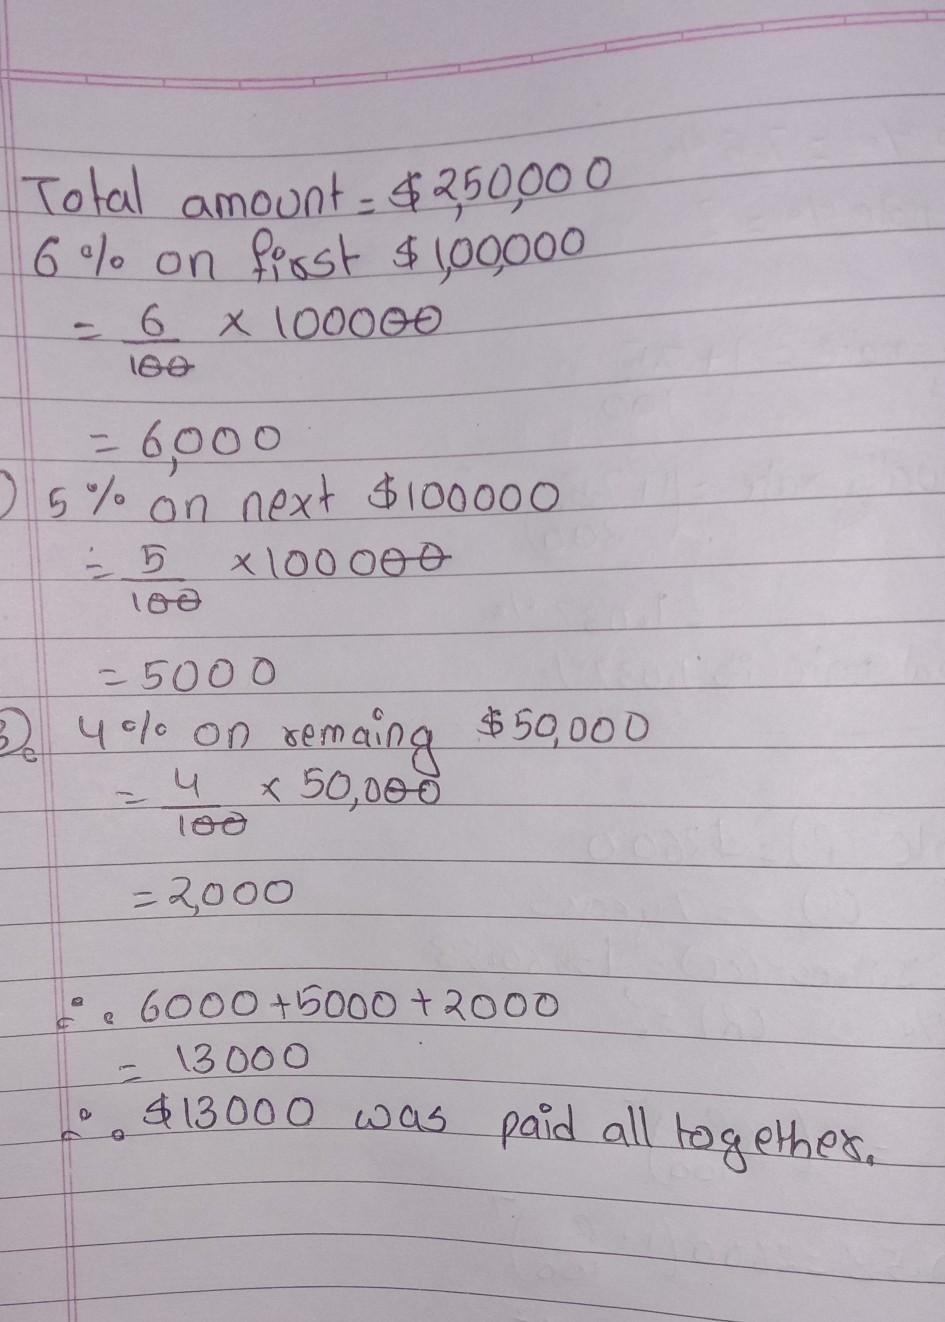 Total amount = $2,50,000
6% on first $1,00,000
= 6/100 x 100000
= 6,000
) 5% on next $100000
= 5/100 x 100000
= 5000
3. 4% on remaing $50,000
= 4/100 x 50,000
= 2,000
∴ 6000 + 5000 + 2000
= 13000
∴ $13000 was paid all together.